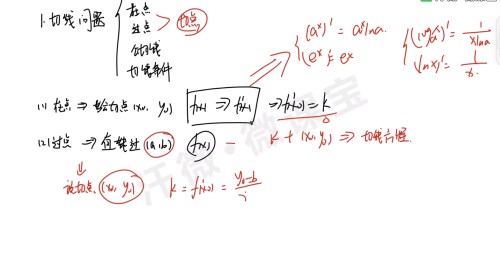 1.切线问题 { 在点
过点 > 切点
公切线
切线条件
{ (aˣ)' = aˣlna.
(eˣ)' = eˣ
{ (logₐx)' = 1/xlna
(lnx)' = 1/x.
(1) 在点 ⇒ 切点 (x₀, y₀) f(x) ⇒ f'(x) ⇒ f'(x₀) = k
(2) 过点 ⇒ 直线过 (a,b) f(x) – k + (x₀,y₀) ⇒ 切线方程.
⇓
设切点 (x₀, y₀) k = f'(x₀) = y₀-b
汗微·微课宝